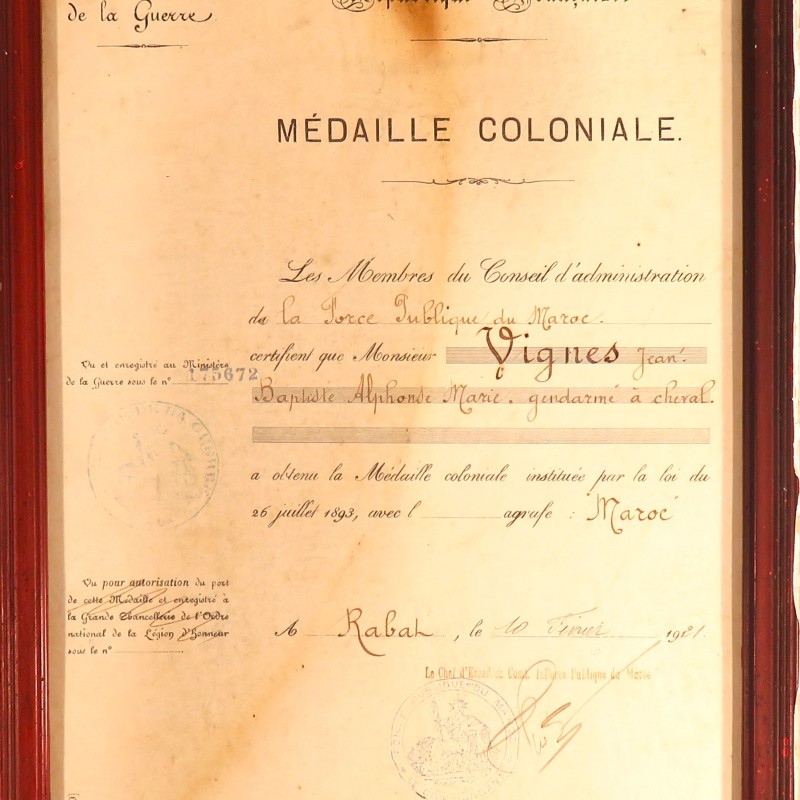 de la Guerre
République Française
MÉDAILLE COLONIALE.
Les Membres du Conseil d'administration
de la Force Publique du Maroc.
certifient que Monsieur Vignes Jean
Baptiste Alphonse Marie. gendarme à cheval.
a obtenu la Médaille coloniale instituée par la loi du
26 juillet 1893, avec l agrafe : Maroc
A Rabat, le 10 Février 1921.
Le Chef d'Escadron Comt. la Force Publique du Maroc
Vu et enregistré au Ministère
de la Guerre sous le n° 175672
Vu pour autorisation du port
de cette Médaille et enregistré à
la Grande Chancellerie de l'Ordre
national de la Légion d'Honneur
sous le n°